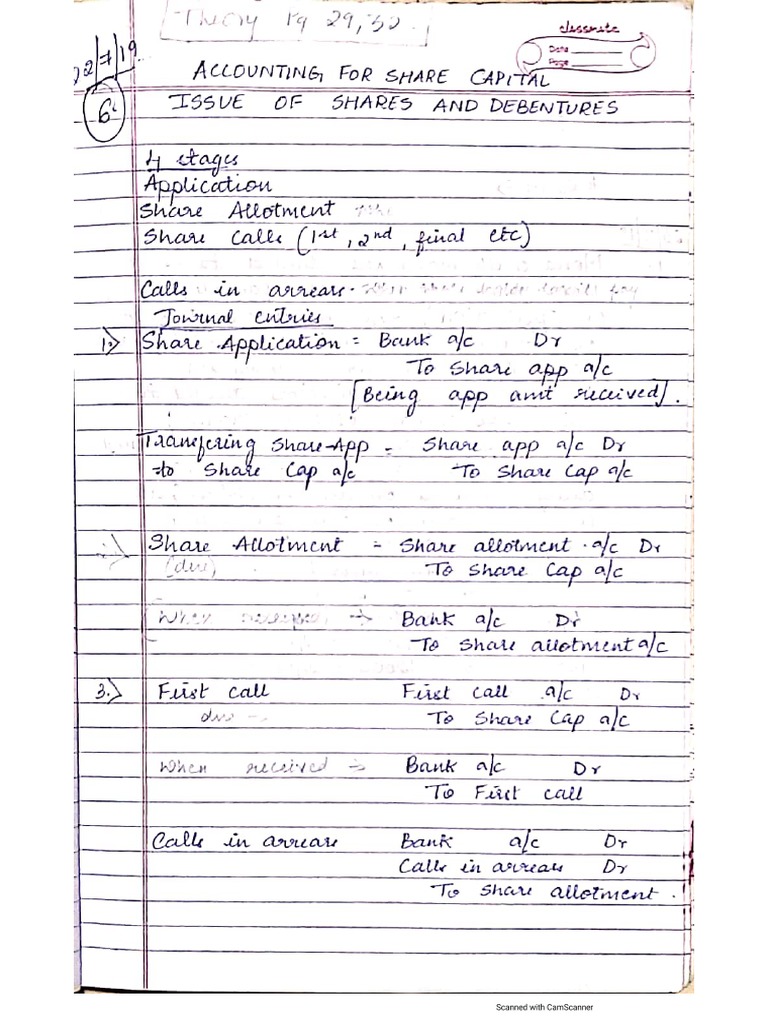 Theory Pg 29, 32.
classmate
Date
Page
22/7/19
6
ACCOUNTING FOR SHARE CAPITAL
ISSUE OF SHARES AND DEBENTURES
4 stages
Application
Share Allotment
Share Calls (1st, 2nd, final etc)
Calls in arrears.
Journal entries
1.) Share Application = Bank a/c Dr
To Share app a/c
[Being app amt received].
Transfering Share App = Share app a/c Dr
to Share Cap a/c To Share Cap a/c
Share Allotment = Share allotment a/c Dr
(due) To Share Cap a/c
When received → Bank a/c Dr
To Share allotment a/c
3.) First call First call a/c Dr
due - To Share Cap a/c
When received = Bank a/c Dr
To First call
Calls in arrears Bank a/c Dr
Calls in arrears Dr
To Share allotment.
Scanned with CamScanner